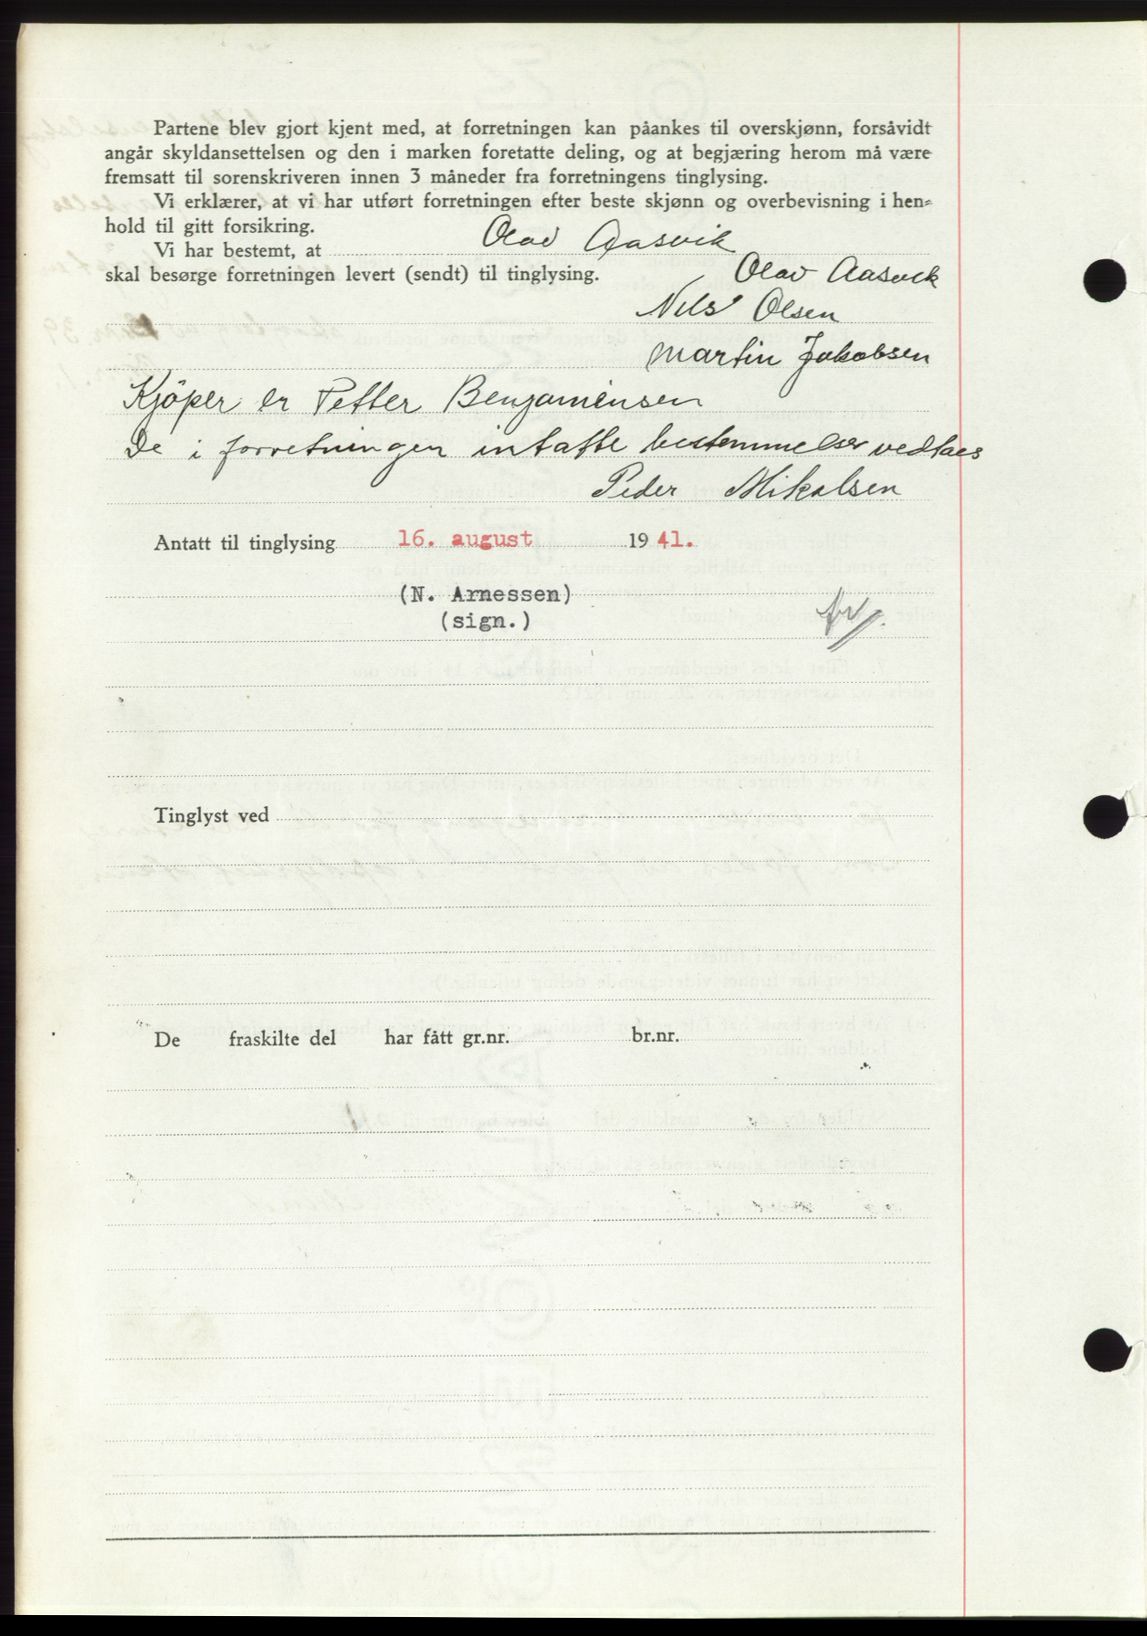 Partene blev gjort kjent med, at forretningen kan påankes til overskjønn, forsåvidt
angår skyldansettelsen og den i marken foretatte deling, og at begjæring herom må være
fremsatt til sorenskriveren innen 3 måneder fra forretningens tinglysing.
Vi erklærer, at vi har utført forretningen efter beste skjønn og overbevisning i hen=
hold til gitt forsikring.
Vi har bestemt, at Olav Aasvik
skal besørge forretningen levert (sendt) til tinglysing. Olav Aasvik
Nils Olsen
Martin Jakobsen
Kjöper er Petter Benjaminsen
De i forretningen intatte bestemmelser vedtaes
Peder Mikalsen
Antatt til tinglysing 16. august 1941.
(N. Arnessen)
(sign.)
Tinglyst ved
De fraskilte del har fått gr.nr. br.nr.